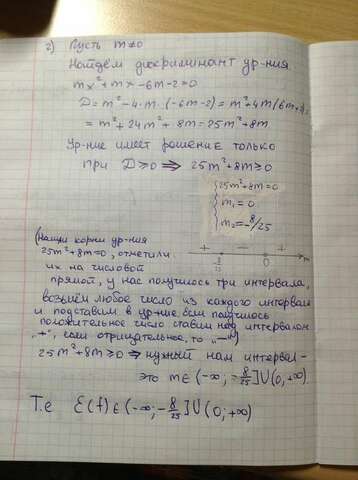 2) Пусть m≠0
Найдём дискриминант ур-ния
mx²+mx-6m-2=0
D=m²-4·m·(-6m-2)=m²+4m(6m+2)=
=m²+24m²+8m=25m²+8m
Ур-ние имеет решение только
при D≥0 ⟹ 25m²+8m≥0
25m²+8m=0
m₁=0
m₂=-8/25
(Нашли корни ур-ния
25m²+8m=0, отметили
их на числовой
прямой, у нас получилось три интервала,
возьмём любое число из каждого интервала
и подставим в ур-ние, если получилось
положительное число ставим над интервалом
„+“, если отрицательное, то „—“)
+ - +
-8/25 0 m
25m²+8m≥0 ⟹ нужный нам интервал-
это m∈(-∞;-8/25]∪(0;+∞)
Т.е E(f)∈(-∞;-8/25]∪(0;+∞)